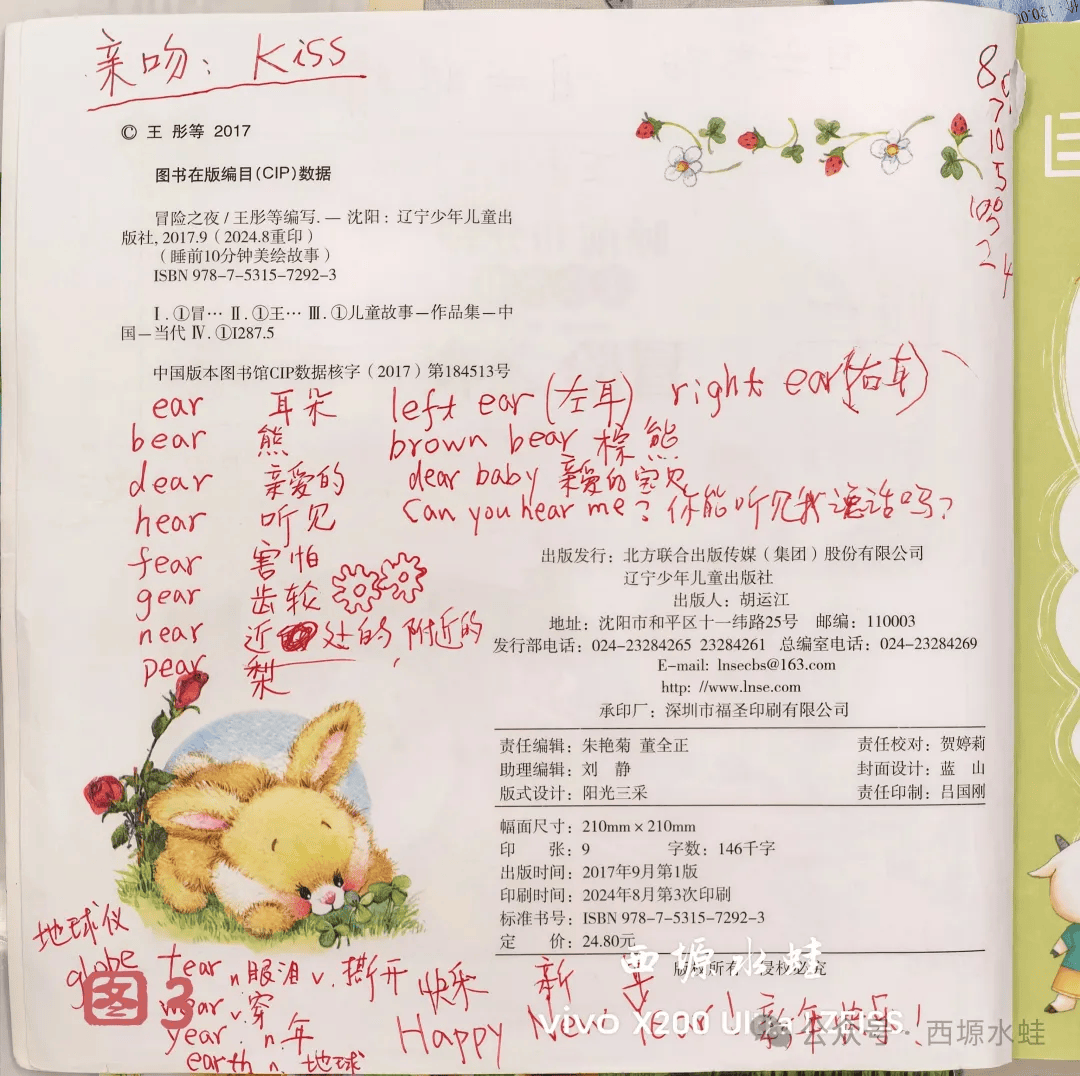 亲吻: Kiss
© 王 彤等 2017
图书在版编目(CIP)数据
冒险之夜 / 王彤等编写. — 沈阳 : 辽宁少年儿童出
版社, 2017.9 ( 2024.8重印 )
( 睡前10分钟美绘故事 )
ISBN 978-7-5315-7292-3
Ⅰ. ①冒… Ⅱ. ①王… Ⅲ. ①儿童故事—作品集—中
国—当代 Ⅳ. ①I287.5
中国版本图书馆CIP数据核字 ( 2017 ) 第184513号
8
7
10
5
2 4
ear 耳朵 left ear (左耳) right ear (右耳)
bear 熊 brown bear 棕熊
dear 亲爱的 dear baby 亲爱的宝贝
hear 听见 Can you hear me? 你能听见我说话吗?
fear 害怕
gear 齿轮
near 近处的 附近的
pear 梨
出版发行: 北方联合出版传媒 ( 集团 ) 股份有限公司
辽宁少年儿童出版社
出版人: 胡运江
地址: 沈阳市和平区十一纬路25号 邮编: 110003
发行部电话: 024-23284265 23284261 总编室电话: 024-23284269
E-mail: lnsecbs@163.com
http: //www.lnse.com
承印厂: 深圳市福圣印刷有限公司
责任编辑: 朱艳菊 董全正 责任校对: 贺婷莉
助理编辑: 刘 静 封面设计: 蓝 山
版式设计: 阳光三采 责任印制: 吕国刚
幅面尺寸: 210mm × 210mm
印 张: 9 字数: 146千字
出版时间: 2017年9月第1版
印刷时间: 2024年8月第3次印刷
标准书号: ISBN 978-7-5315-7292-3
定 价: 24.80元
版权所有 侵权必究
西塬水蛙
地球仪
globe
tear n 眼泪 v. 撕开
wear v. 穿
year n. 年
earth n. 地球
快乐 新 年
Happy New Year! 新年快乐!
图3
vivo X200 Ultra | ZEISS
公众号 · 西塬水蛙